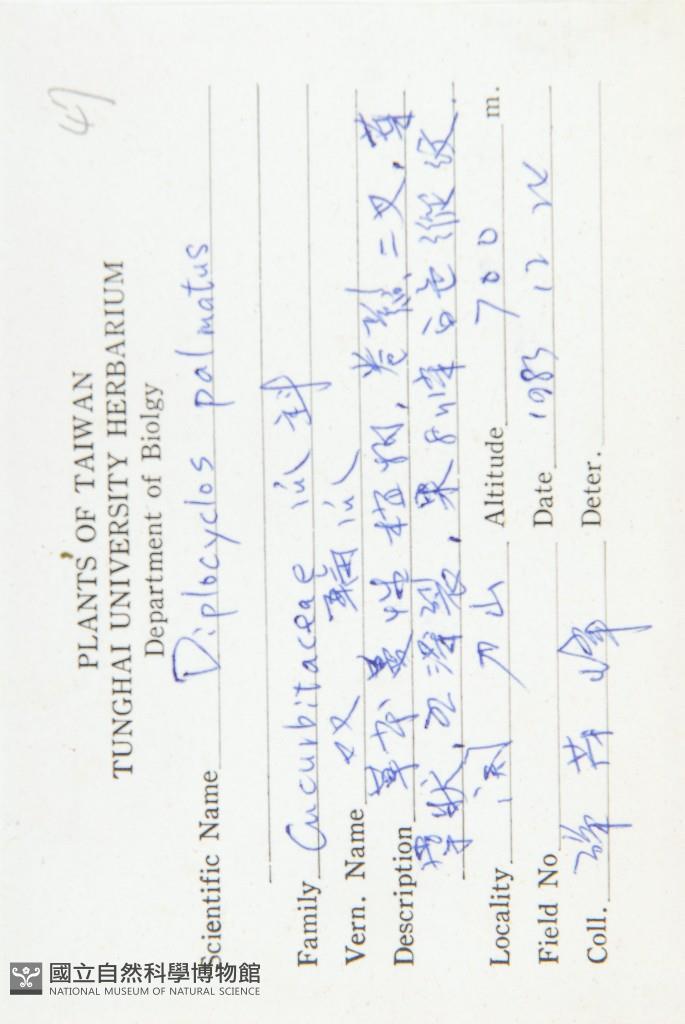 47
PLANTS OF TAIWAN
TUNGHAI UNIVERSITY HERBARIUM
Department of Biolgy
Scientific Name Diplocyclos palmatus
Family Cucurbitaceae 瓜科
Vern. Name 双輪瓜
Description 草本蔓性植物,卷鬚二叉,葉
掌狀,五深裂,果實 白色縱紋.
Locality 关刀山 Altitude 700 m.
Field No Date 1983 12 24
Coll. 峰 Deter.
國立自然科學博物館
NATIONAL MUSEUM OF NATURAL SCIENCE